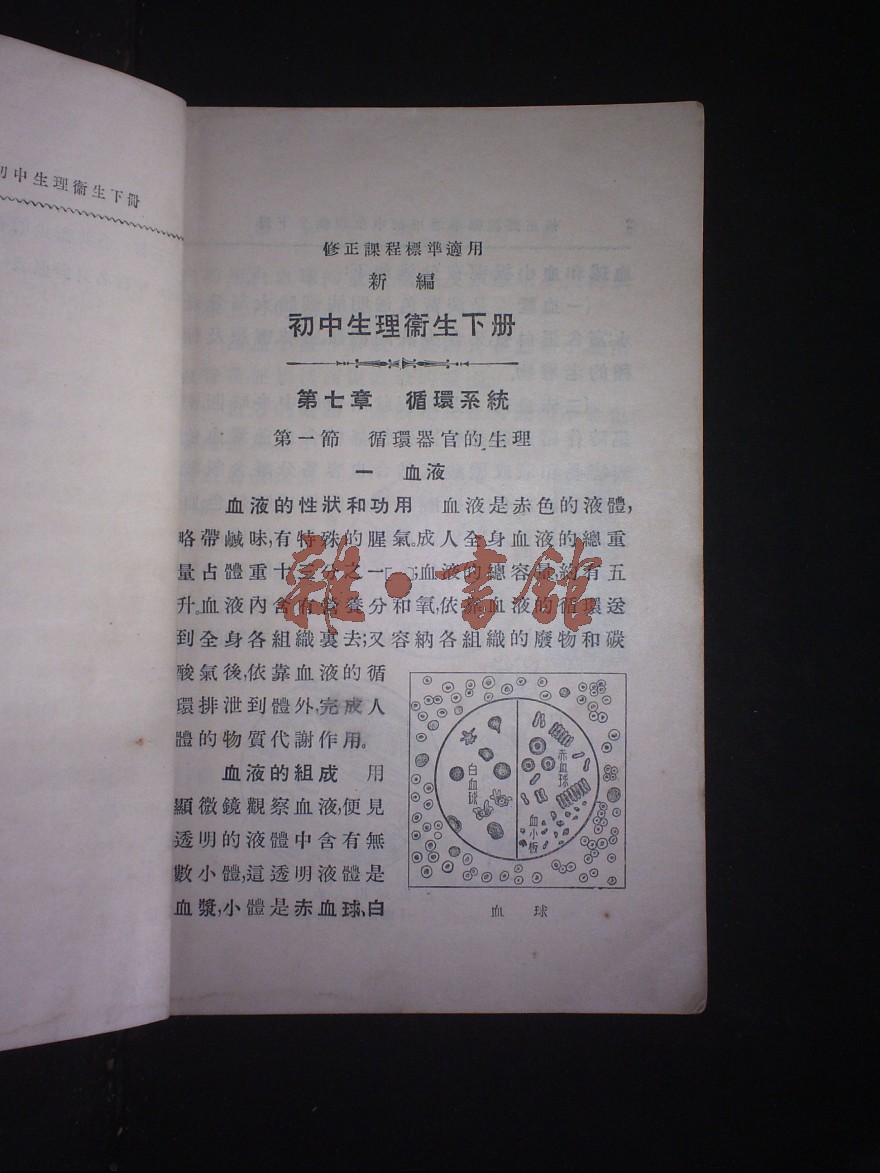 初中生理衞生下冊
修正課程標準適用
新編
初中生理衞生下册
第七章 循環系統
第一節 循環器官的生理
一 血液
血液的性狀和功用 血液是赤色的液體,
略帶鹹味,有特殊的腥氣。成人全身血液的總重
量占體重十三分之一;血液的總容量,約有五
升。血液內含有營養分和氧,依靠血液的循環送
到全身各組織裏去;又容納各組織的廢物和碳
酸氣後,依靠血液的循
環排泄到體外,完成人
體的物質代謝作用。
血液的組成 用
顯微鏡觀察血液,便見
透明的液體中含有無
數小體,這透明液體是
血漿,小體是赤血球、白
白血球
赤血球
血小板
血球
雜·書館